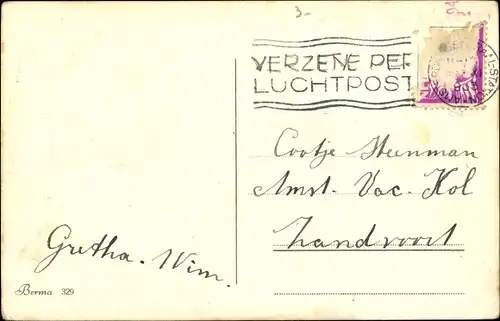 3-
VERZENE PER
LUCHTPOST
Cootje Steenman
Amst. Vac. Kol
Zandvoort
Gretha. Wim.
Berma 329